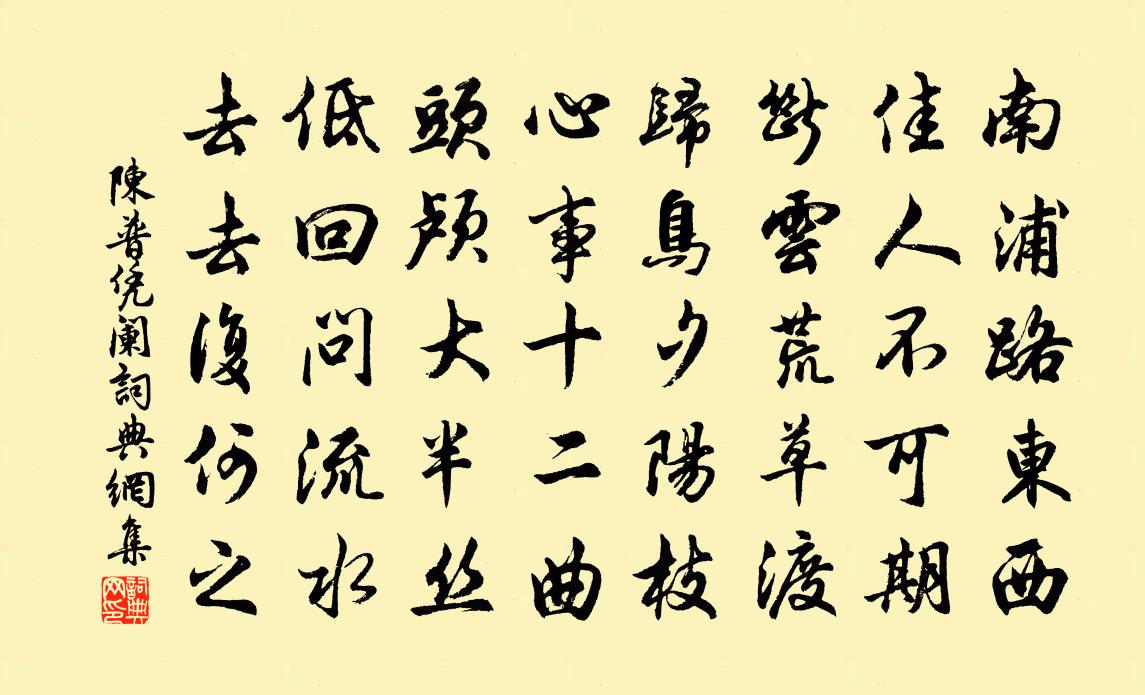 南浦路東西
佳人不可期
斷雲荒草渡
歸鳥夕陽枝
心事十二曲
頭顱大半絲
低回問流水
去去復何之
陳普凭闌詞典網集
詞典
网印